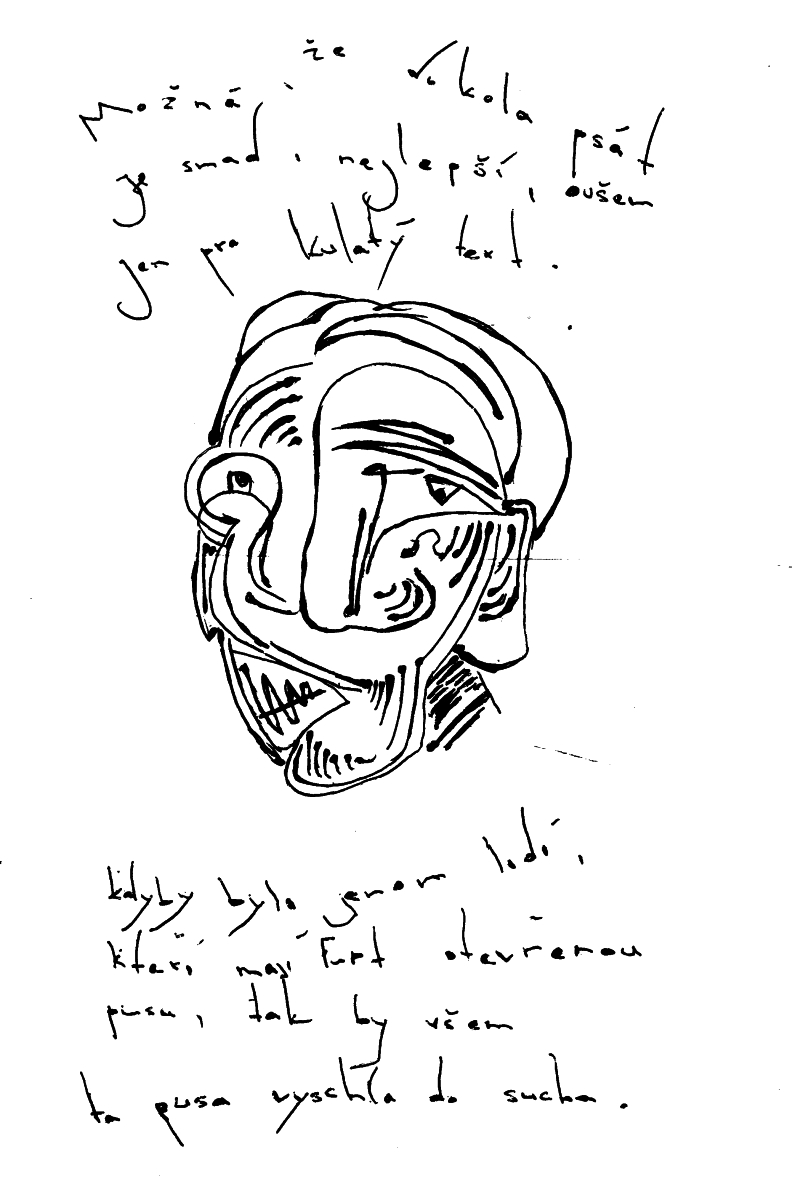 Možná že dokola psát
je snad i nejlepší, ovšem
jen pro kulatý text.
kdyby bylo jenom lidí,
kteří mají furt otevřenou
pusu, tak by všem
ta pusa vyschla do sucha.